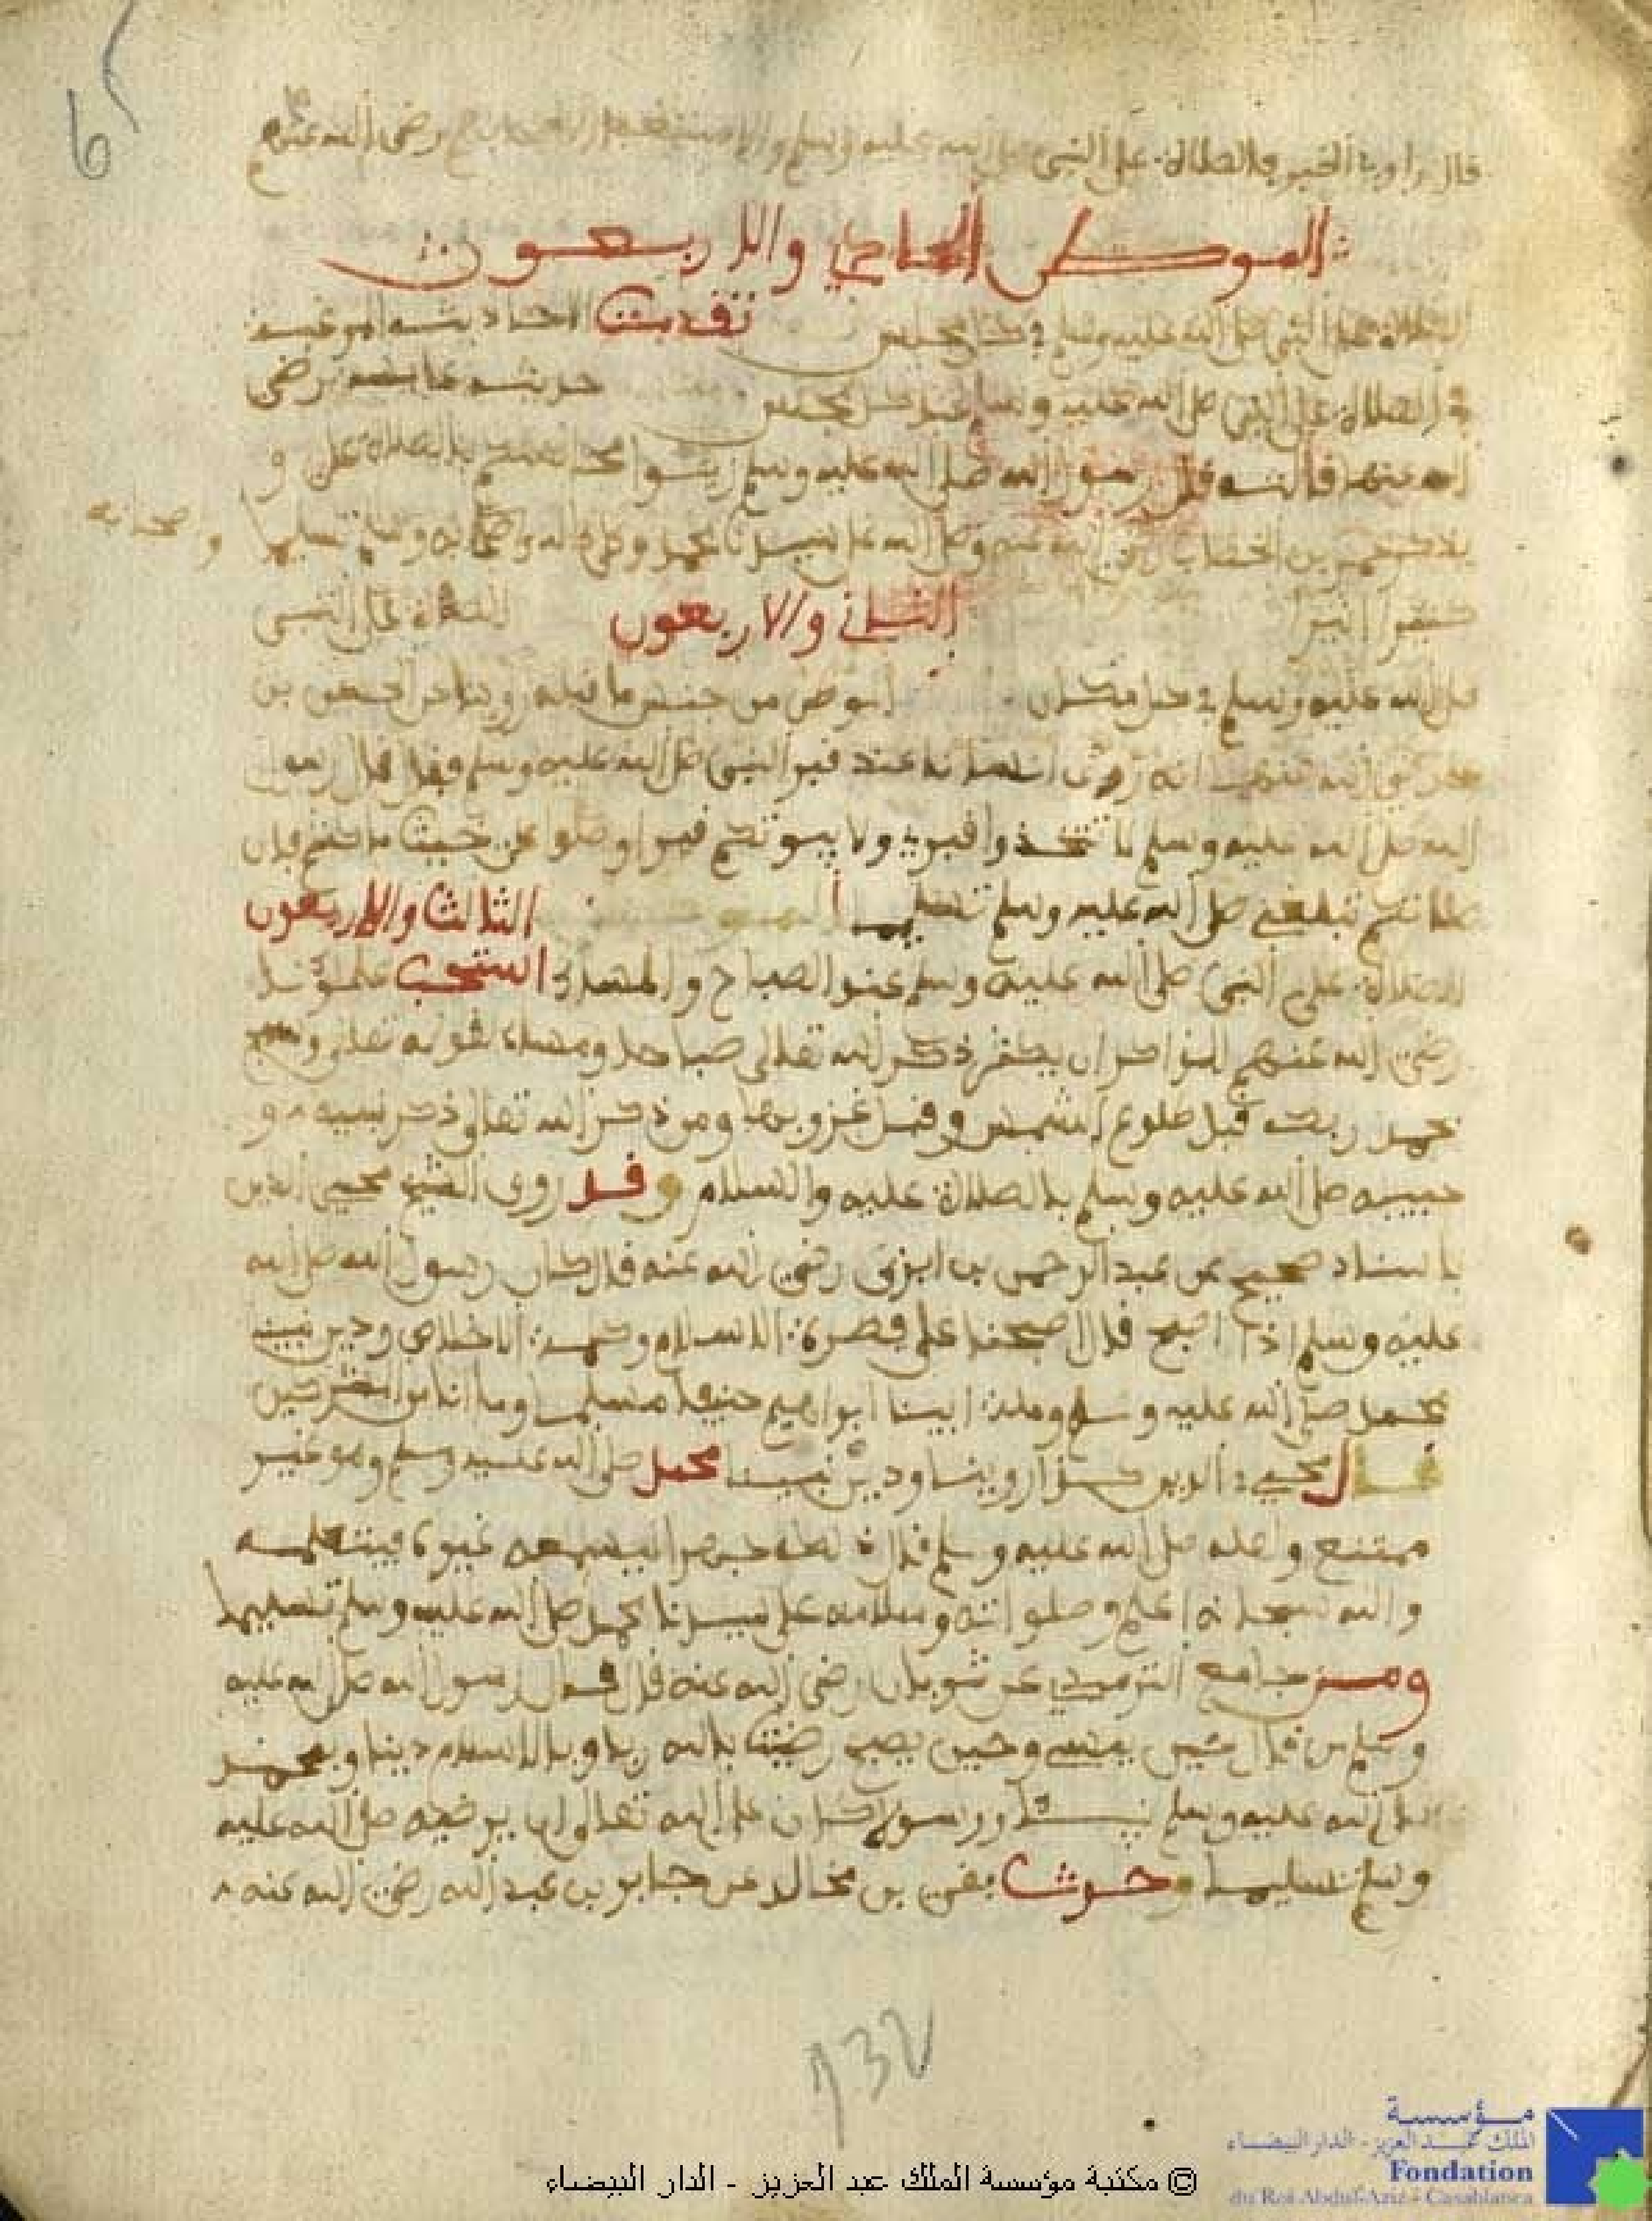 65
قال راوية الخبر والصلاة على النبي صلى الله عليه وسلم رضي الله عنهم
الموطن الحادي والاربعون
الصلاة على النبي صلى الله عليه وسلم في كل مجلس تقدمت الاحاديث
في الصلاة على النبي صلى الله عليه وسلم عند كل مجلس حديث عايشة رضي
الله عنها قالت قال رسول الله صلى الله عليه وسلم زينوا مجالسكم بالصلاة علي و
بذكر عمر بن الخطاب رضي الله عنه وصلى الله على سيدنا محمد وعلى اله وصحابه وسلم تسليما
وصحابه
كثيرا الثاني والاربعون الصلاة على النبي
صلى الله عليه وسلم في كل مكان من جنس ما قبله روينا عن الحسن بن
رضي الله عنهما انه عند قبر النبي صلى الله عليه وسلم فقال قال رسول
الله صلى الله عليه وسلم لا تتخذوا قبري ولا بيوتكم قبورا وصلوا علي حيث ما كنتم فان
صلاتكم تبلغني صلى الله عليه وسلم تسليما الثالث والاربعون
الصلاة على النبي صلى الله عليه وسلم عند الصباح والمساء استحب علماؤنا
رضي الله عنهم ان يكثر ذكر الله تعالى صباحا ومساء لقوله تعالى وسبح
بحمد ربك قبل طلوع الشمس وقبل غروبها ومن ذكر الله تعالى ذكر نبيه و
حبيبه صلى الله عليه وسلم بالصلاة عليه والسلام وقد روى الشيخ محيي الدين
باسناد صحيح عن عبد الرحمن بن ابزى رضي الله عنه قال كان رسول الله صلى الله
عليه وسلم اذا اصبح قال اصبحنا على فطرة الاسلام وكلمة الاخلاص ودين نبينا
محمد صلى الله عليه وسلم وملة ابينا ابراهيم حنيفا مسلما وما انا من المشركين
قال محيي الدين كذا روينا ودين نبينا محمد صلى الله عليه وسلم وهو غير
ممتنع ولعله صلى الله عليه وسلم قال ذلك جهرا ليسمعه غيره فيتعلمه
والله سبحانه اعلم وصلواته وسلامه على سيدنا محمد صلى الله عليه وسلم تسليما
ومن جامع الترمذي عن ثوبان رضي الله عنه قال قال رسول الله صلى الله عليه
وسلم من قال حين يمسي وحين يصبح رضيت بالله ربا وبالاسلام دينا وبمحمد
صلى الله عليه وسلم نبيئا ورسولا كان على الله تعالى ان يرضيه صلى الله عليه
وسلم تسليما وحدث بقي بن مخالد عن جابر بن عبد الله رضي الله عنه
132
© مكتبة مؤسسة الملك عبد العزيز - الدار البيضاء
مؤسسة
الملك عبد العزيز - الدار البيضاء
Fondation
du Roi Abdul-Aziz - Casablanca